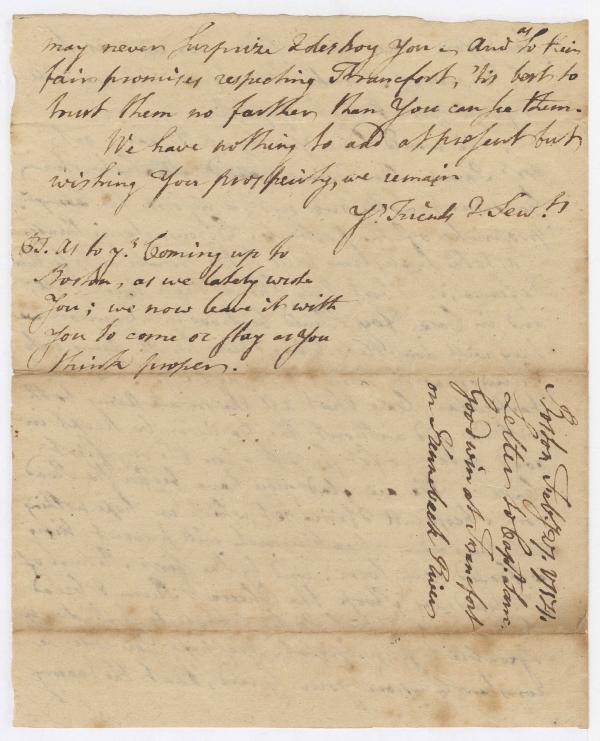 may never Surprize & destroy You. And as to their
fair promises respecting Francfort, 'tis best to
trust them no farther than You can see them.
We have nothing to add at present but
wishing Your prosperity, we remain
Yr. Friends & Servts
PS. As to yr. Coming up to
Boston, as we lately wrote
You; we now leave it with
You to come or stay as You
think proper.
Boston 27. 1754.
Letter to Capt. Saml.
Goodwin at Francfort
on Kennebeck River